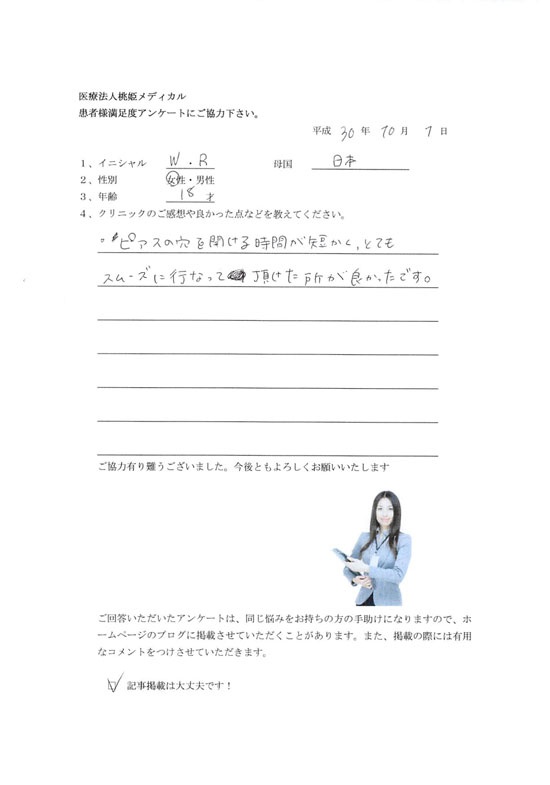 医療法人桃姫メディカル
患者様満足度アンケートにご協力下さい。
平成 30 年 10 月 1 日
1、イニシャル W・R 母国 日本
2、性別 女性・男性
3、年齢 18 才
4、クリニックのご感想や良かった点などを教えてください。
・ピアスの穴を開ける時間が短かく、とても
スムーズに行なって頂けた所が良かったです。
ご協力有り難うございました。今後ともよろしくお願いいたします
ご回答いただいたアンケートは、同じ悩みをお持ちの方の手助けになりますので、ホ
ームページのブログに掲載させていただくことがあります。また、掲載の際には有用
なコメントをつけさせていただきます。
記事掲載は大丈夫です！